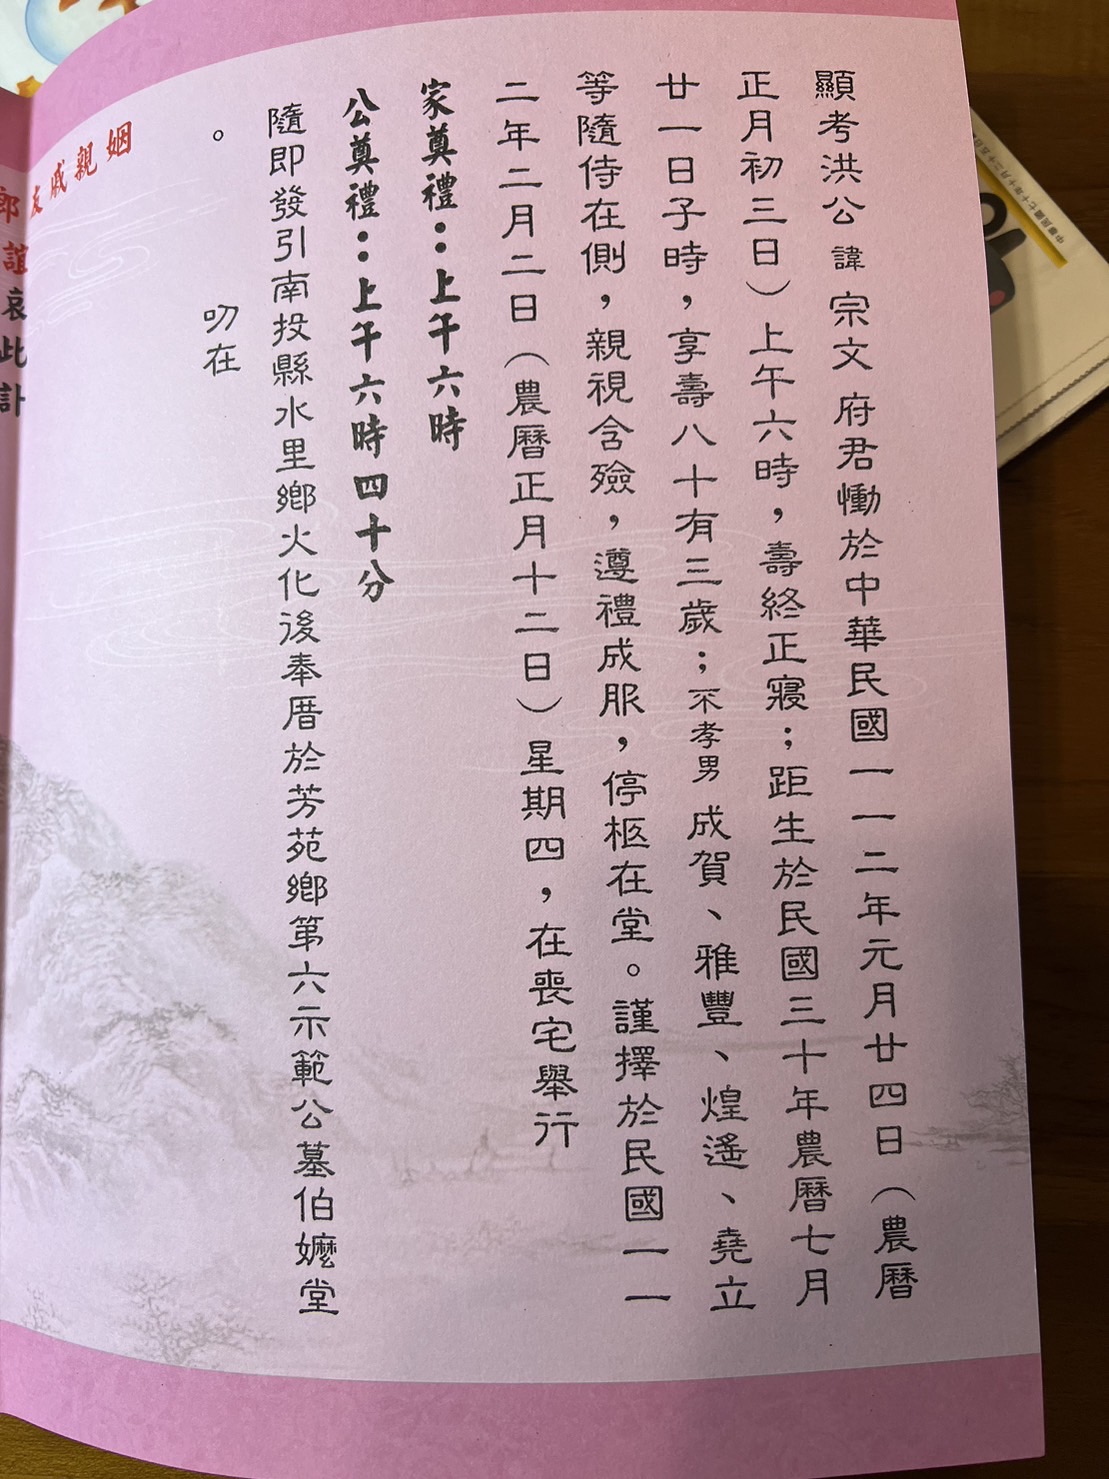 顯考洪公 諱 宗文 府君慟於中華民國一一二年元月廿四日（農曆
正月初三日）上午六時，壽終正寢；距生於民國三十年農曆七月
廿一日子時，享壽八十有三歲；不孝男 成賀、雅豐、煌遙、堯立
等隨侍在側，親視含殮，遵禮成服，停柩在堂。謹擇於民國一一
二年二月二日（農曆正月十二日）星期四，在喪宅舉行
家奠禮：上午六時
公奠禮：上午六時四十分
隨即發引南投縣水里鄉火化後奉厝於芳苑鄉第六示範公墓伯嬤堂
。
叨在
姻親戚友
郎誼哀此訃
中華民國七十年十月二十五日